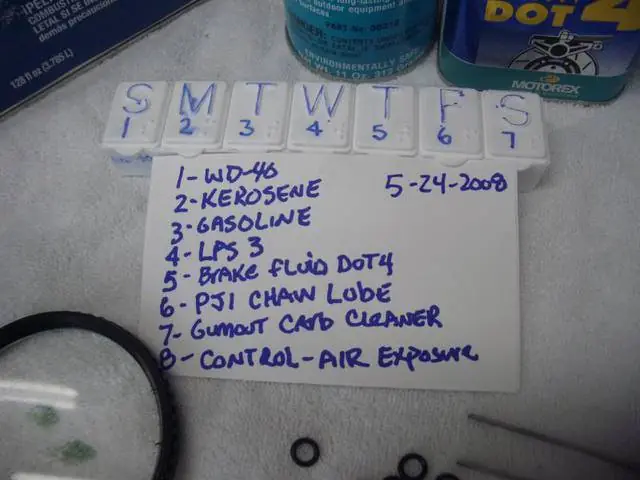 COMBUS
LETAL SI SE IN
demas precauciones
128 fl oz (3.785 L)
outdoor equipment a
surfaces
ENVIRONMENTALLY SAFE
DOT 4
MOTOREX
S M T W T F S
1 2 3 4 5 6 7
5-24-2008
1- WD-40
2- KEROSENE
3- GASOLINE
4- LPS 3
5- BRAKE FLUID DOT4
6- PJ1 CHAIN LUBE
7- GUMOUT CARB CLEANER
8- CONTROL-AIR EXPOSURE